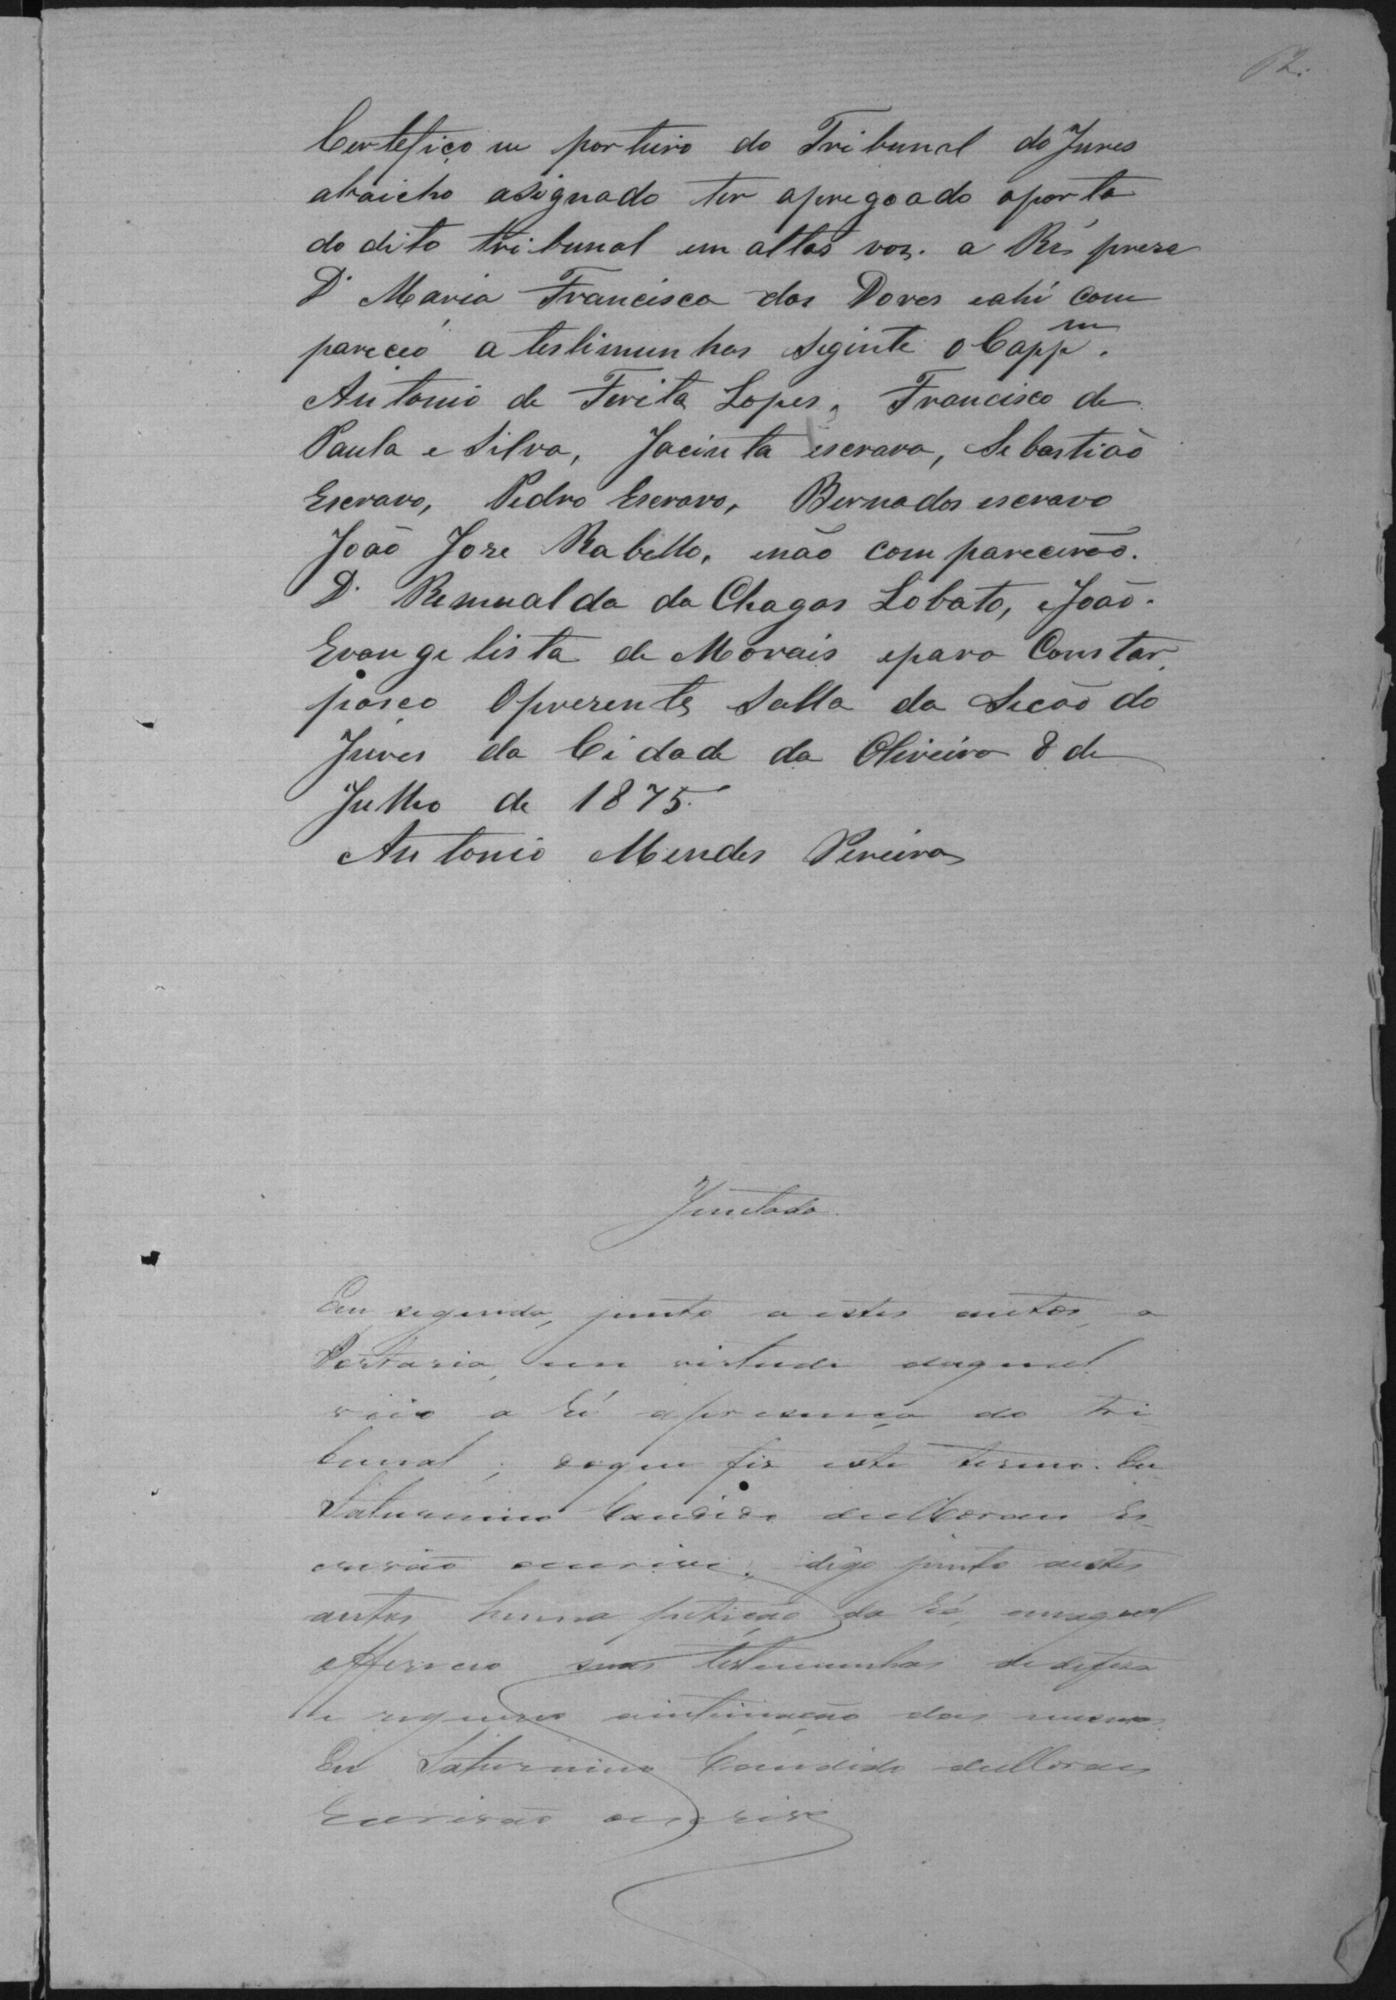 Certefiço eu porteiro do Tribunal do Jures
abaicho asignado ter apregoado aporta
do dito tribunal em altas voz. a Ré preza
D. Maria Francisca das Dores eahi com
pareceo a testimunhas siginte o Capp.m
Antonio de Freita Lopes, Francisco de
Paula e Silva, Jacinta escrava, Sebastião
Escravo, Pedro Escravo, Bernados escravo
João Joze Rabello, enão comparecerão.
D. Remualda da Chagas Lobato, eJoão.
Evangelista de Morais epara Constar
paseo Oprezente Salla da Secão do
Jures da Cidade da Oliveira 8 de
Julho de 1875.
Antonio Mendes Pereira
Juntada.
Em seguida, junto a estes autos, a
Portaria, em virtude daqual
veio a Ré apresença do tri-
bunal; doque fiz este termo. Eu
Saturnino Candido deMoraes Es-
crivão oescrivi, digo junto aestes
autos huma petição da Ré, emaqual
offerece suas testemunhas dedefeza
e requer aintimação das mesmas.
Eu Saturnino Candido deMoraes
Escrivão oescrivi